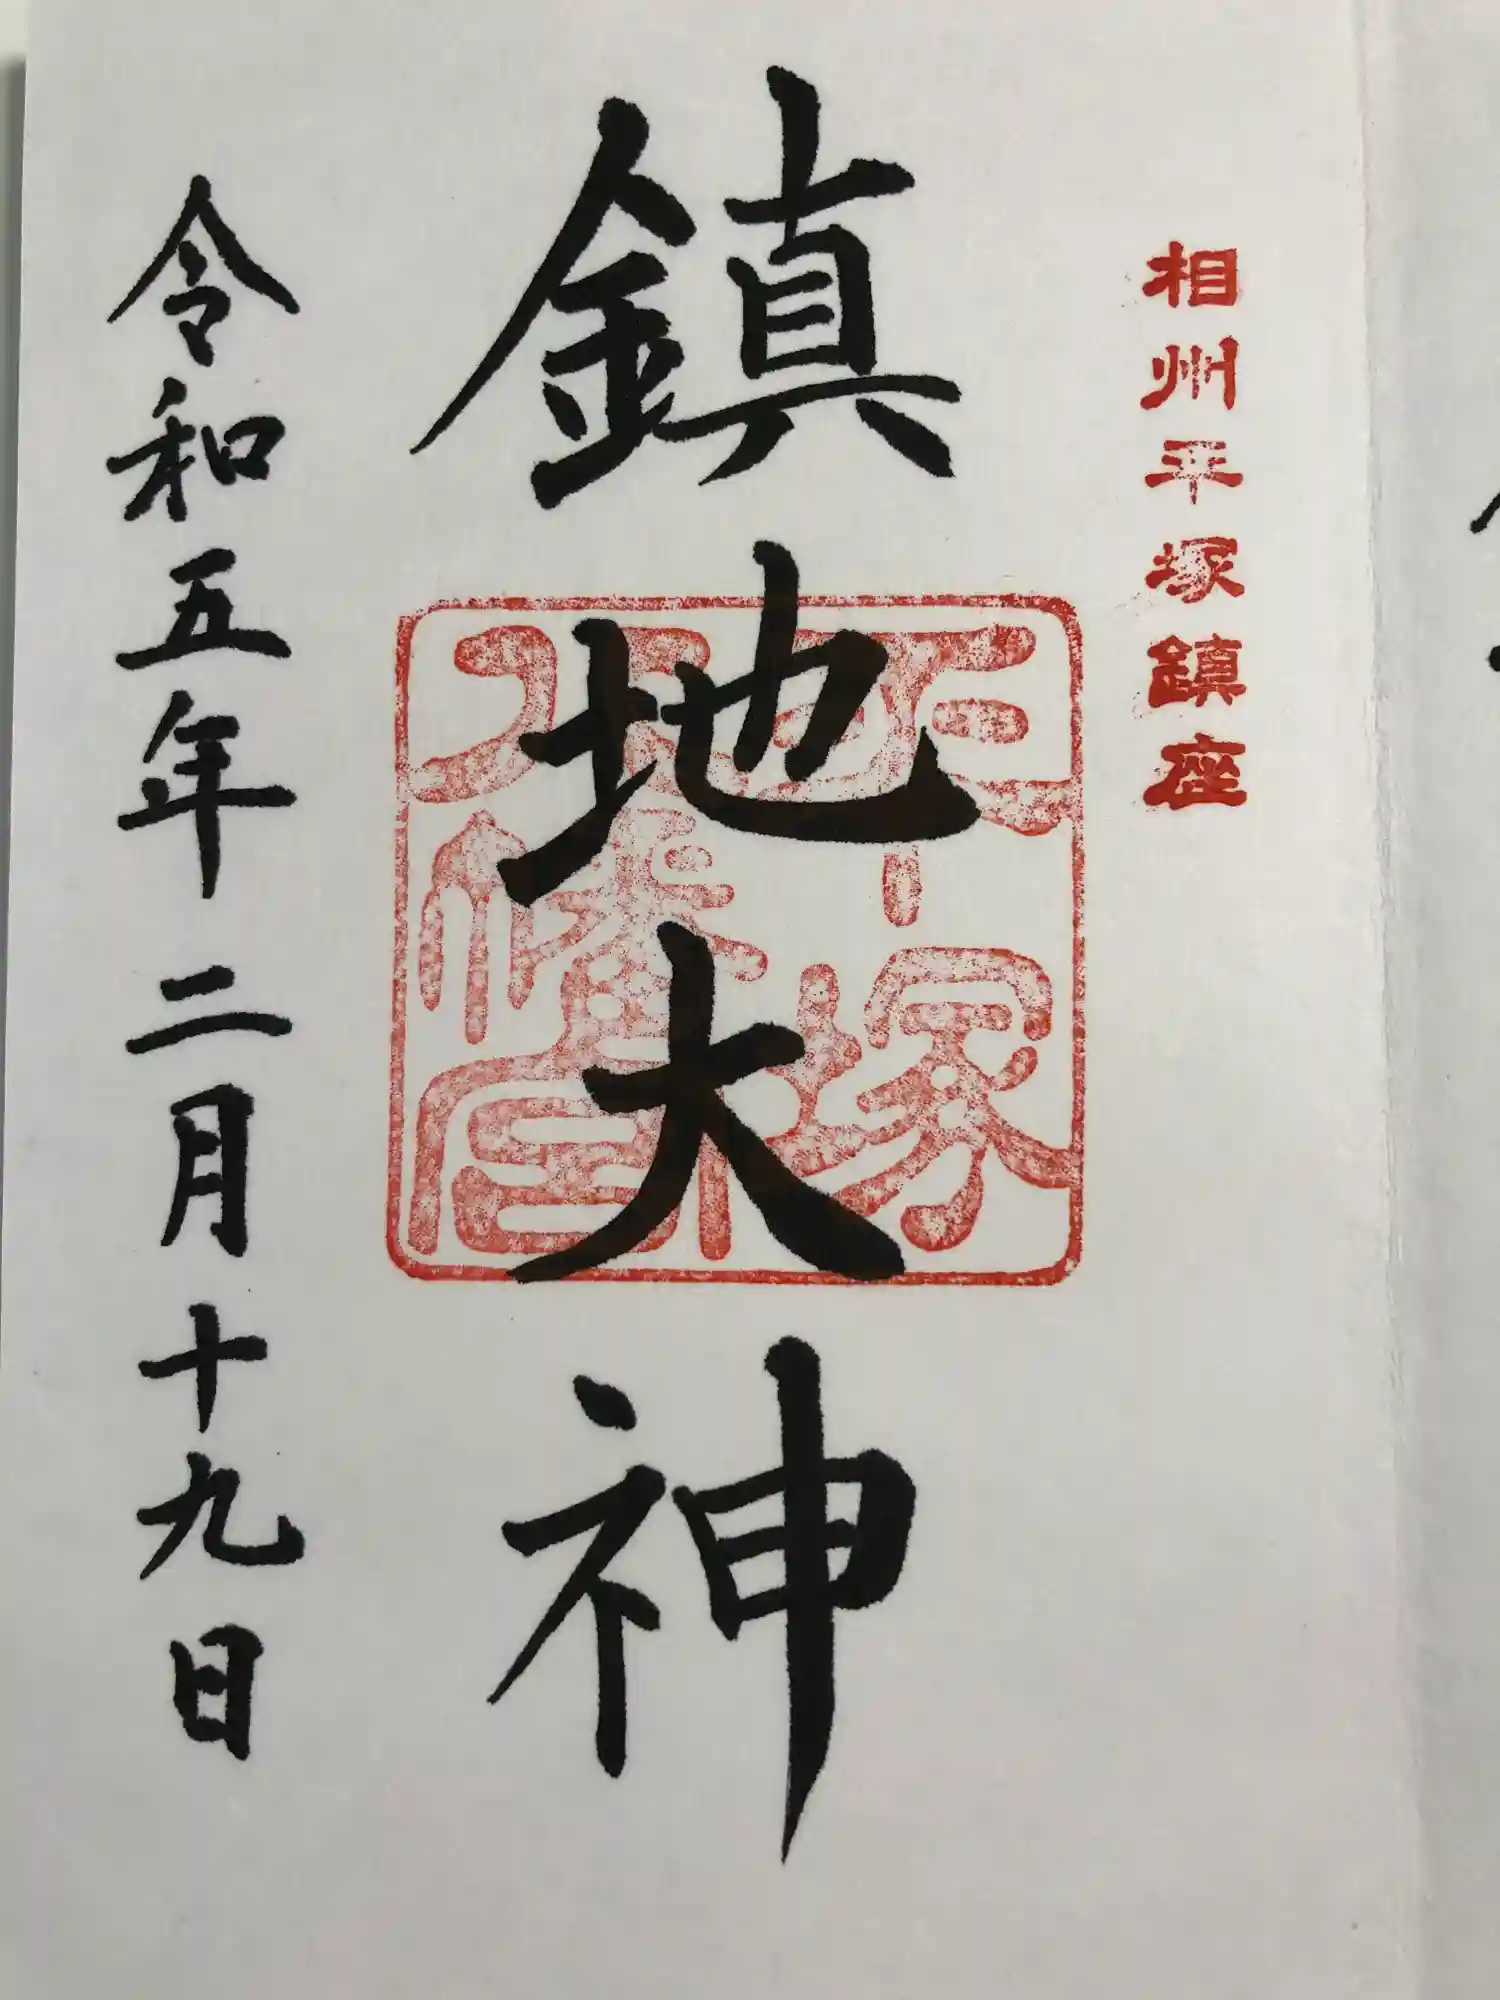 相州平塚鎮座
鎮地大神
平塚
八幡宮
令和五年二月十九日